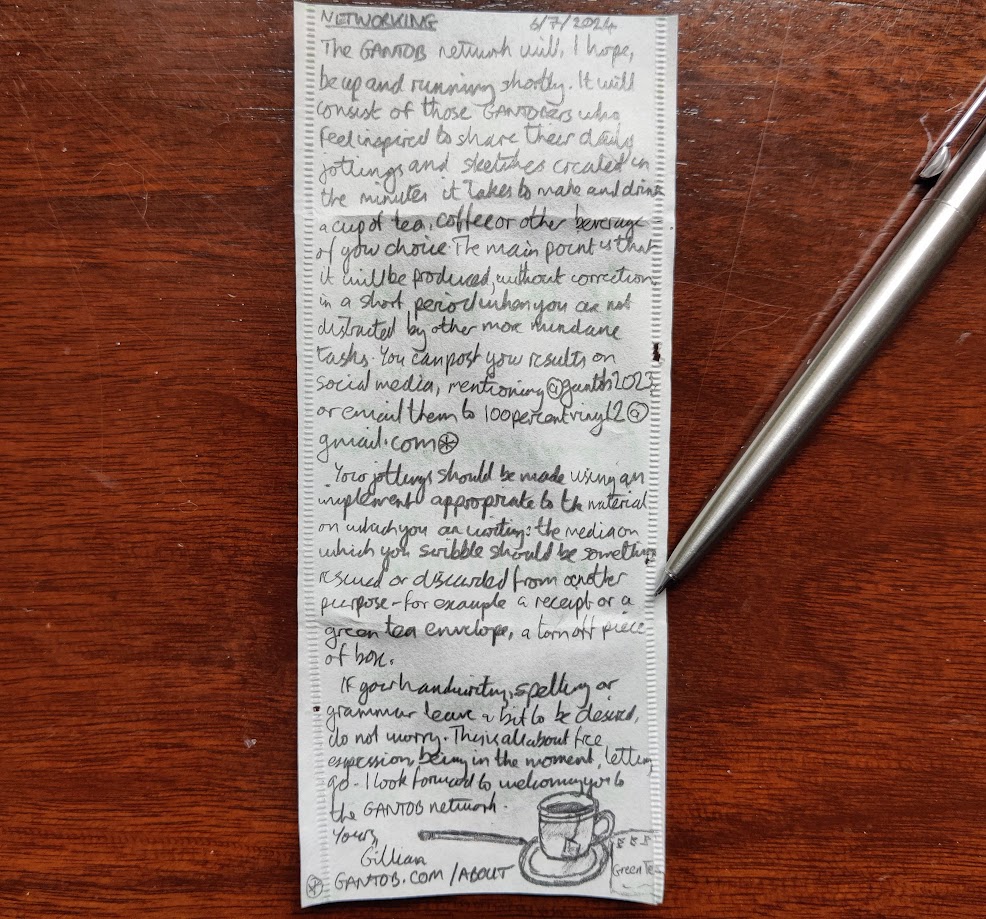 NETWORKING 6/7/2024
The GANTOB network will, I hope,
be up and running shortly. It will
consist of those GANTOBERS who
feel inspired to share their daily
jottings and sketches created in
the minutes it takes to make and drink
a cup of tea, coffee or other beverage
of your choice. The main point is that
it will be produced, without correction
in a short period when you are not
distracted by other more mundane
tasks. You can post your results on
social media, mentioning @gantob2023
or email them to 100percentvinyl2@
gmail.com⊛
Your jottings should be made using an
implement appropriate to the material
on which you are writing: the media on
which you scribble should be something
rescued or discarded from another
purpose - for example a receipt or a
green tea envelope, a torn off piece
of box.
If your handwriting, spelling or
grammar leave a bit to be desired,
do not worry. This is all about free
expression, being in the moment, letting
go - I look forward to welcoming you to
the GANTOB network.
Yours,
Gillian
Green Te
⊛ GANTOB.COM/ABOUT